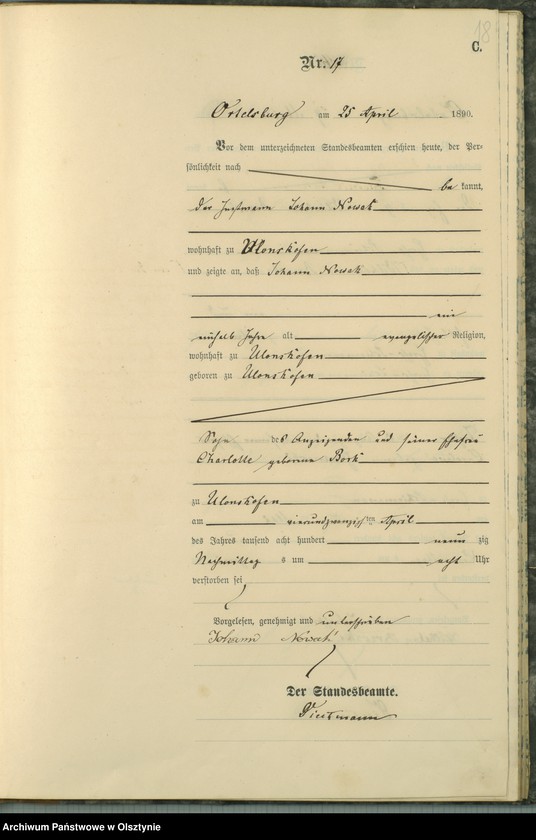 18
C.
Nr. 17
Ortelsburg am 25 April 1890.
Vor dem unterzeichneten Standesbeamten erschien heute, der Per-
sönlichkeit nach
be kannt,
der Instmann Johann Nowak
wohnhaft zu Ulonskofen
und zeigte an, daß Johann Nowak
ein
einhalb Jahre alt evangelischer Religion,
wohnhaft zu Ulonskofen
geboren zu Ulonskofen
Sohn des Anzeigenden und seiner Ehefrau
Charlotte geborene Bork
zu Ulonskofen
am vierundzwanzigsten April
des Jahres tausend acht hundert neun zig
Nachmittags um acht Uhr
verstorben sei
Vorgelesen, genehmigt und unterschrieben
Johann
Der Standesbeamte.
Archiwum Państwowe w Olsztynie